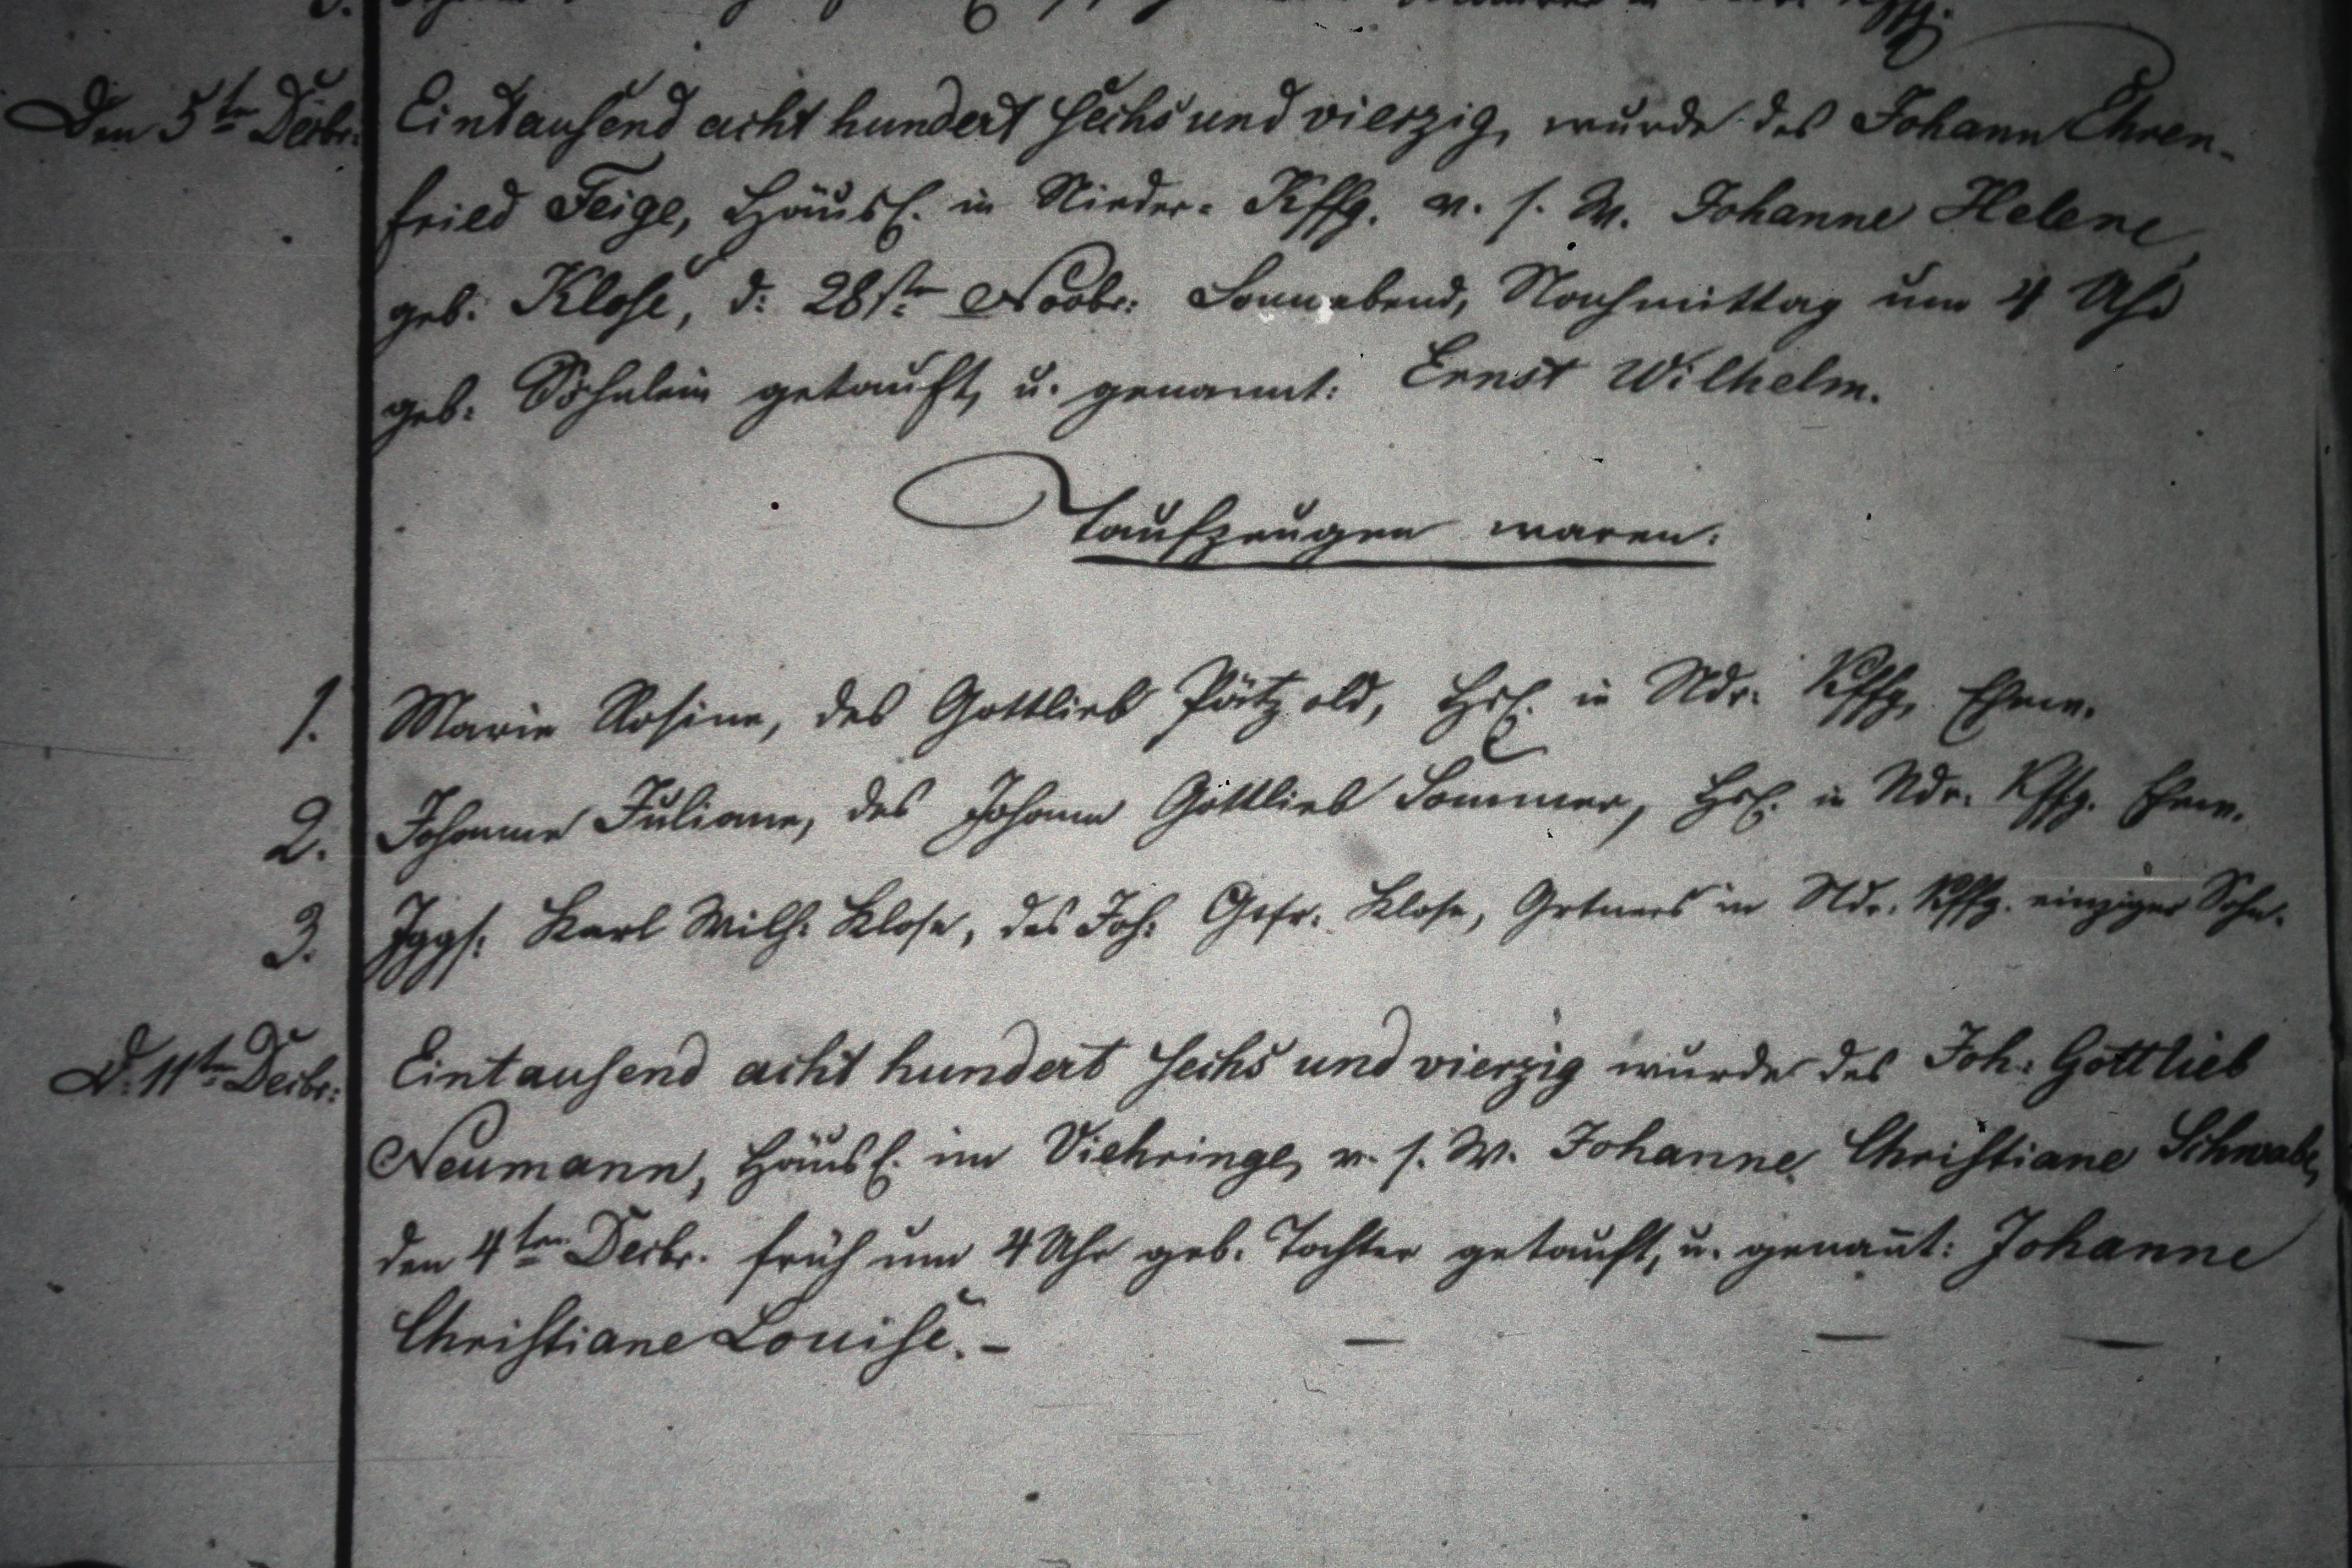 Den 5ten Decbr: Eintausend acht hundert sechs und vierzig, wurde des Johann Ehren-
fried Feige, Häusl. in Nieder-Kffg. v. s. W. Johanne Helene,
geb: Klose, d: 28sten Novbr: Sonnabend, Nachmittag um 4 Uhr
geb: Söhnlein getauft, u. genannt: Ernst Wilhelm.
Taufzeugen waren:
1. Marie Rosine, des Gottlieb Pätzold, Hsl. in Ndr: Kffg, Ehew.
2. Johanne Juliane, des Johann Gottlieb Sommer, Hsl. in Ndr. Kffg. Ehew.
3. Jggs: Karl Wilh: Klose, des Joh: Gtfr: Klose, Grtners in Ndr. Kffg. einziger Sohn.
D. 11ten Decbr: Eintausend acht hundert sechs und vierzig wurde des Joh: Gottlieb
Neumann, Häusl. im Viehringe, v. s. W. Johanne Christiane Schwabe,
den 4ten Decbr. früh um 4 Uhr geb. Tochter getauft, u. genañt: Johanne
Christiane Louise. –